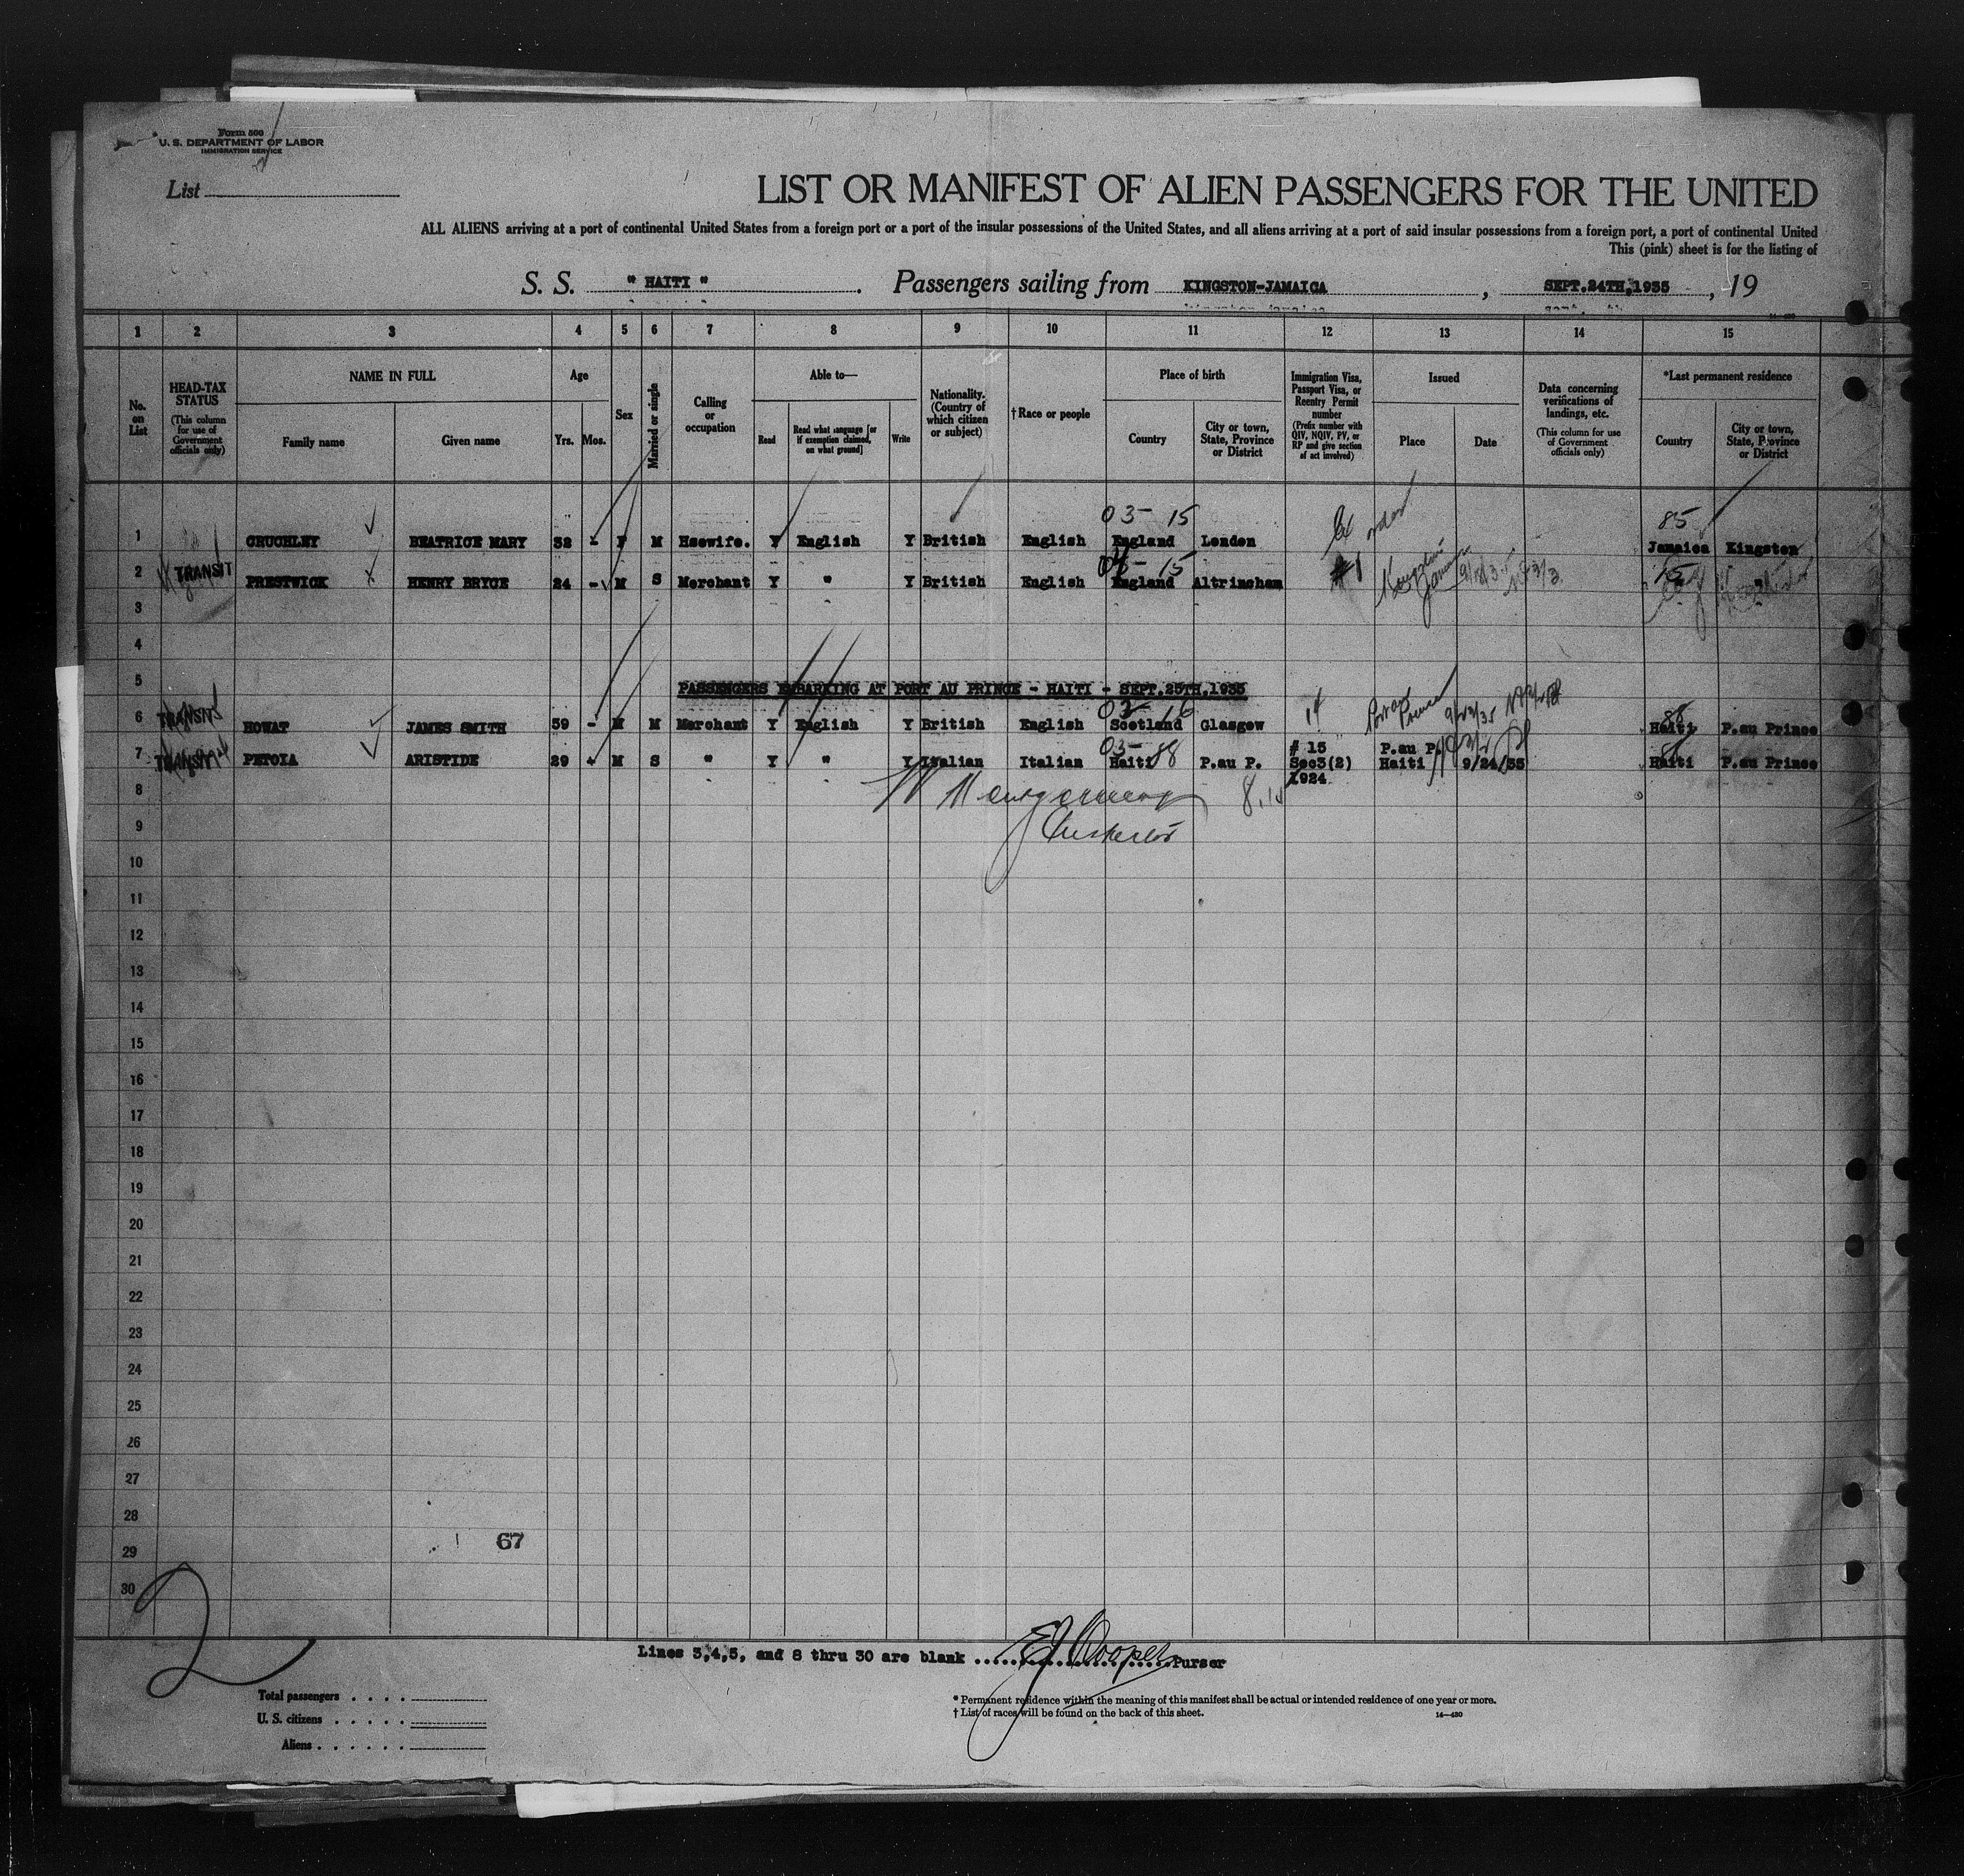 Form 500
U. S. DEPARTMENT OF LABOR
IMMIGRATION SERVICE
List
LIST OR MANIFEST OF ALIEN PASSENGERS FOR THE UNITED
ALL ALIENS arriving at a port of continental United States from a foreign port or a port of the insular possessions of the United States, and all aliens arriving at a port of said insular possessions from a foreign port, a port of continental United
This (pink) sheet is for the listing of
S. S. " HAITI " . Passengers sailing from KINGSTON-JAMAICA , SEPT.24TH,1935 , 19
1 2 3 4 5 6 7 8 9 10 11 12 13 14 15
No. on List
HEAD-TAX STATUS (This column for use of Government officials only)
NAME IN FULL
Family name Given name
Age
Yrs. Mos.
Sex
Married or single
Calling or occupation
Able to—
Read Read what language [or if exemption claimed, on what ground] Write
Nationality. (Country of which citizen or subject)
† Race or people
Place of birth
Country City or town, State, Province or District
Immigration Visa, Passport Visa, or Reentry Permit number (Prefix number with QIV, NQIV, PV, or RP and give section of act involved)
Issued
Place Date
Data concerning verifications of landings, etc. (This column for use of Government officials only)
*Last permanent residence
Country City or town, State, Province or District
03- 15 85
1 CRUCHLEY BEATRICE MARY 32 - F M Hsewife. Y English Y British English England London Jamaica Kingston
15 15
2 TRANSIT PRESTWICK HENRY BRYCE 24 - M S Merchant Y " Y British English England Altrincham #1 Kingston Jamaica
3
4
5 PASSENGERS EMBARKING AT PORT AU PRINCE - HAITI - SEPT.25TH,1935
6 TRANSIT HOWAT JAMES SMITH 59 - M M Merchant Y English Y British English Scotland Glasgow 14 Port au Prince 9/23/35 Haiti P.au Prince
03- 88
7 TRANSIT PETOIA ARISTIDE 29 - M S " Y " Y Italian Italian Haiti P.au P. # 15 Sec3(2) 1924 P.au P. Haiti 9/24/35 Haiti P.au Prince
8 Montgomery
9 Inspector
10
11
12
13
14
15
16
17
18
19
20
21
22
23
24
25
26
27
28
67
29
30
2
Lines 3,4,5, and 8 thru 30 are blank ........................Purser
EJ Cooper
Total passengers . . . .
U. S. citizens . . . . .
Aliens . . . . . .
* Permanent residence within the meaning of this manifest shall be actual or intended residence of one year or more.
† List of races will be found on the back of this sheet.
14—430